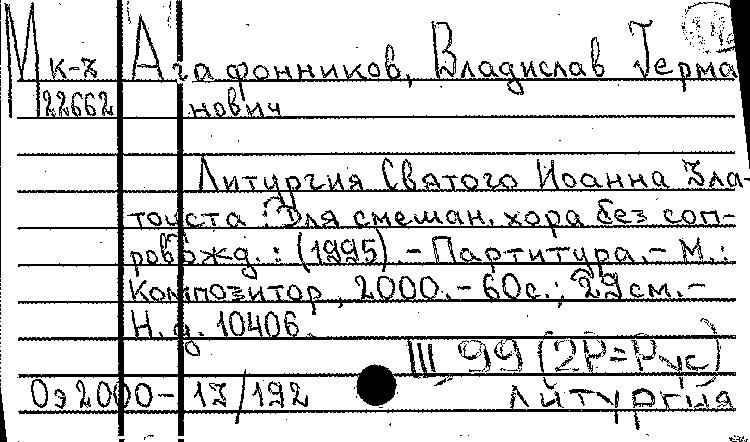 М к-з Агафонников, Владислав Герма
22662 нович
Литургия Святого Иоанна Зла-
тоуста : Для смешан. хора без соп-
ровожд. : (1995). - Партитура. - М. :
Композитор, 2000. - 60с. ; 29см. -
Н. д. 10406.
III 99 (2Р=Рус)
Оэ2000- 17/192 литургия